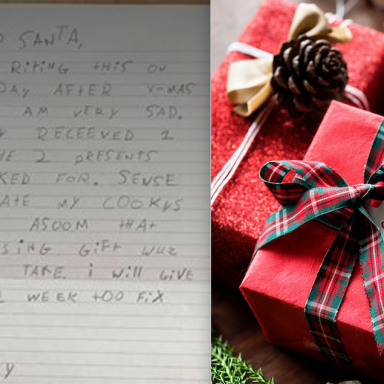 SANTA,
RITING THIS ON
DAY AFTER X-MAS
AM VERY SAD.
RECEEVED 1
2 PRESENTS
KED FOR. SENSE
ATE MY COOKYS
ASOOM THAT
SING GIFT WUZ
TAKE. i WiLL GiVE
WEEK TOO FiX
Y